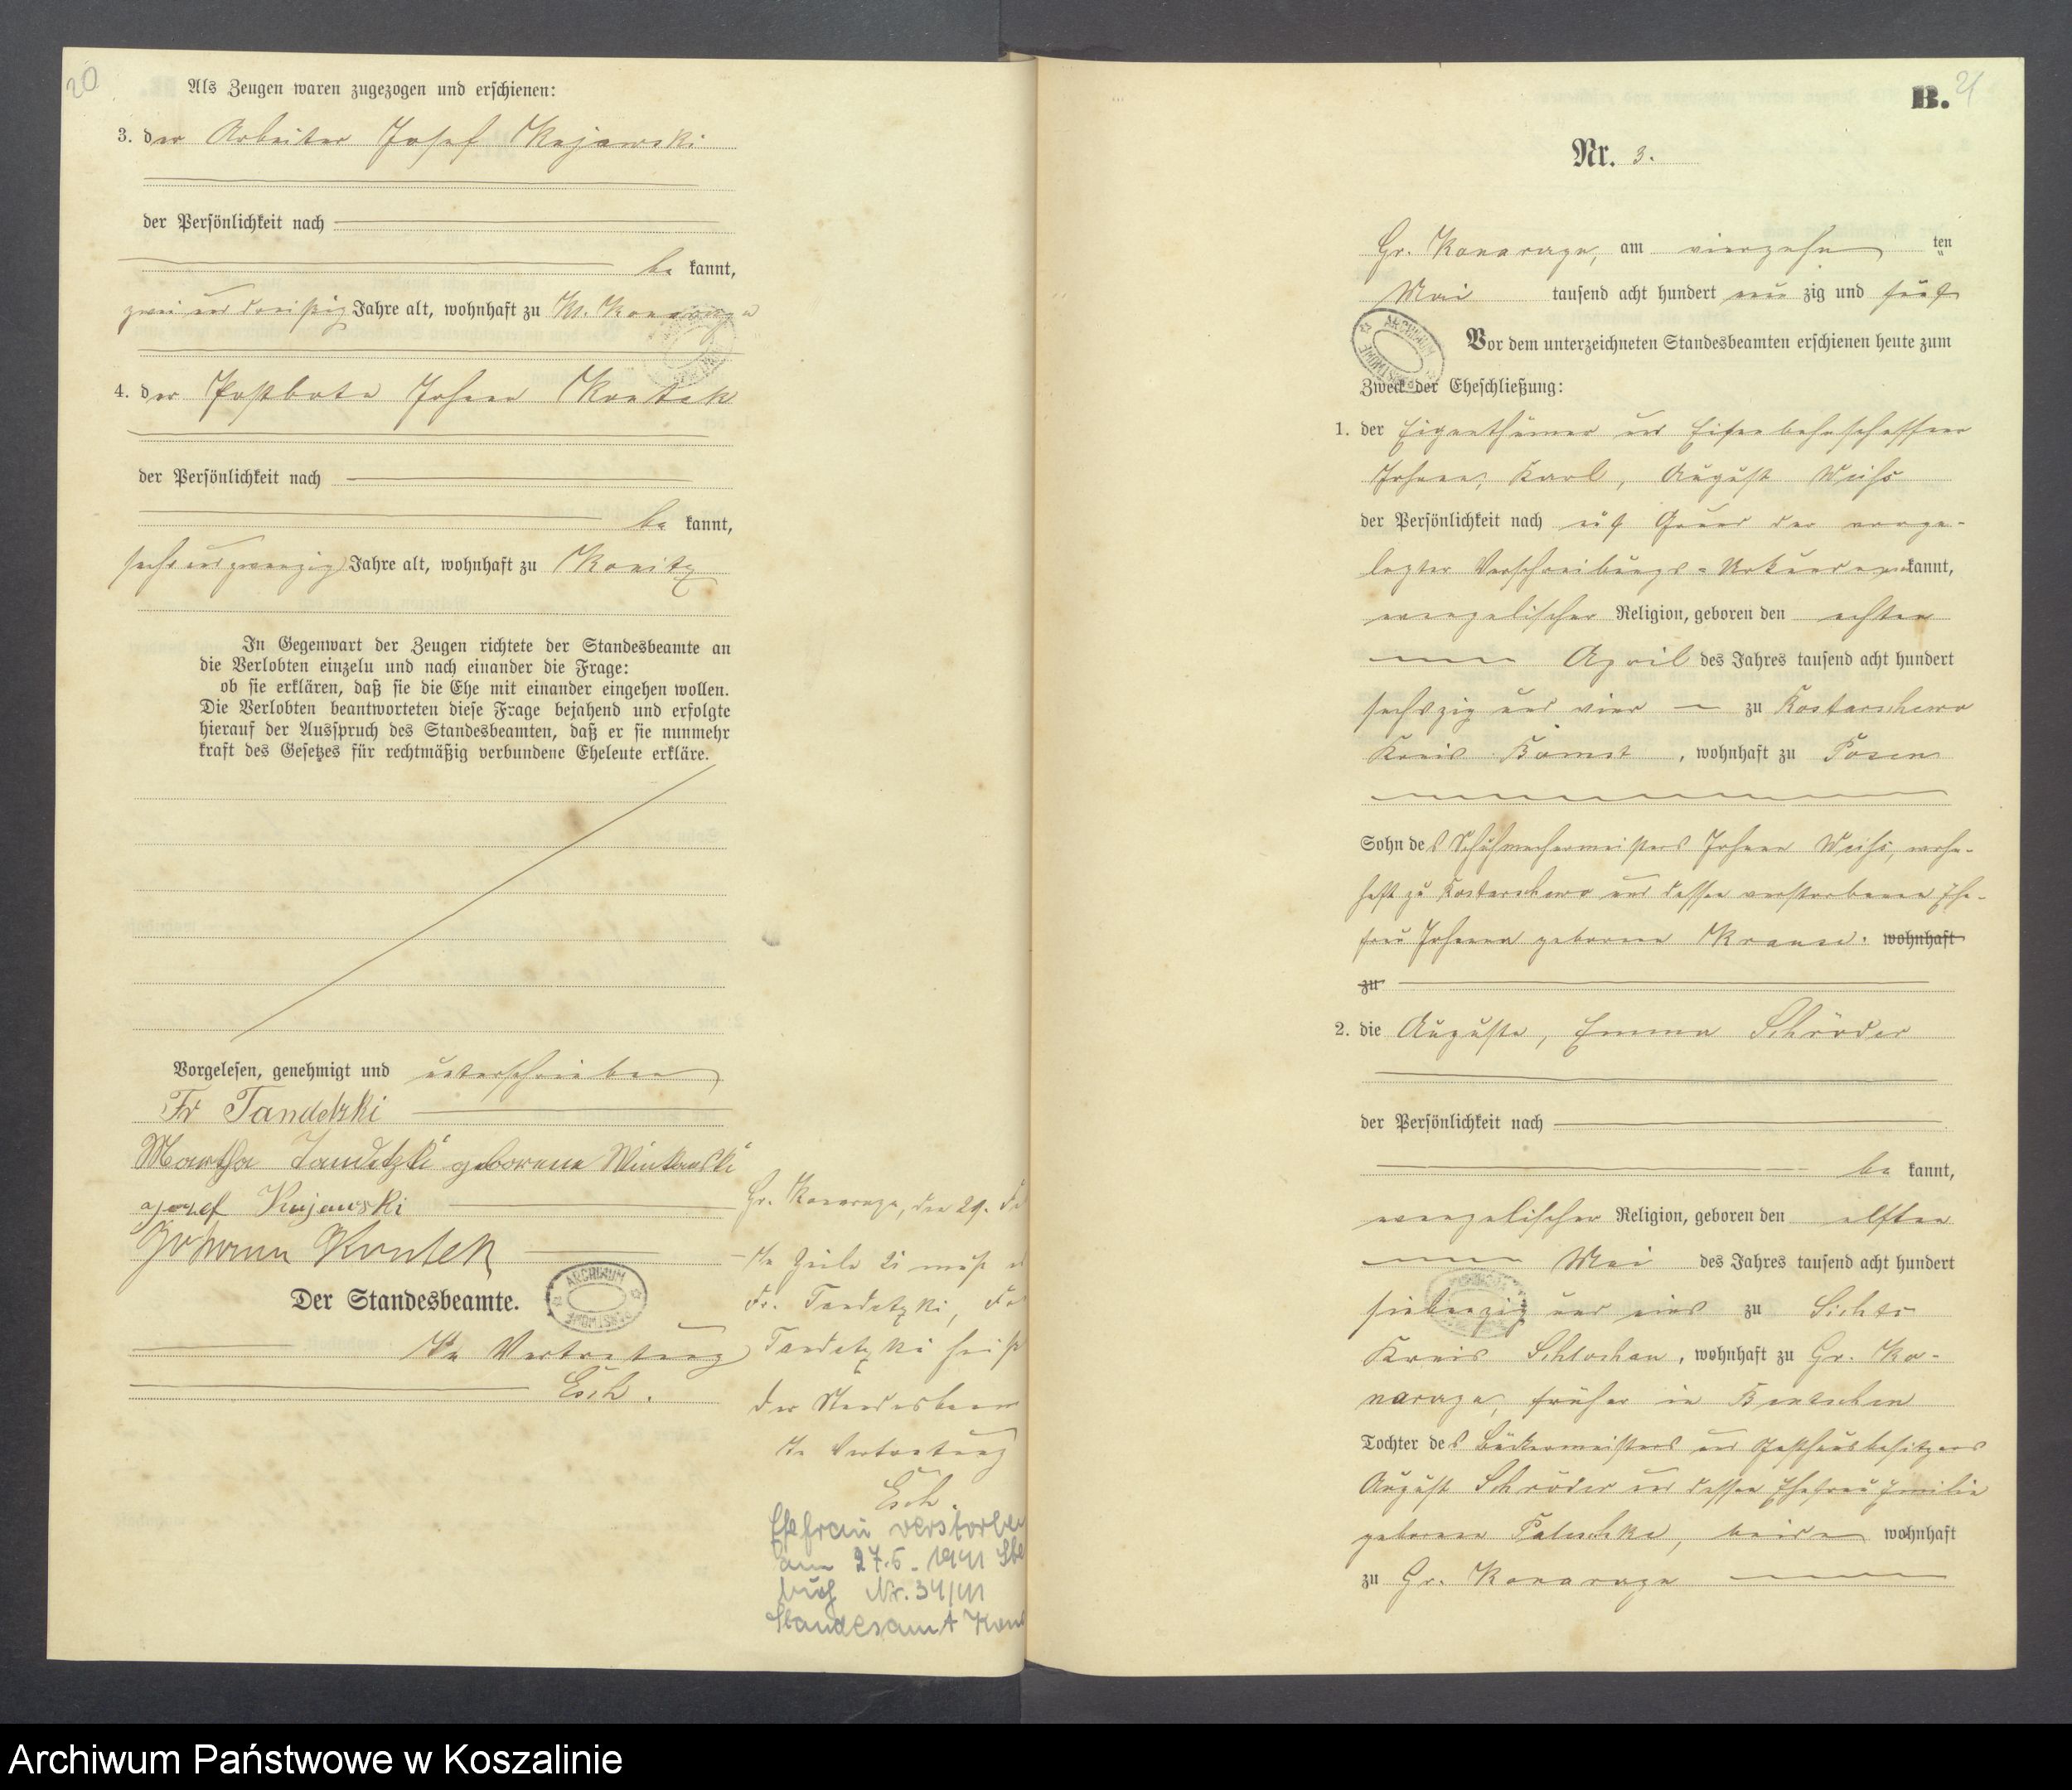 20
Als Zeugen waren zugezogen und erschienen:
3. der Arbeiter Josef Kujawski
der Persönlichkeit nach
be kannt,
zwei und dreißig Jahre alt, wohnhaft zu Kl. Konarzyn
4. der Postbote Johann Kontek
der Persönlichkeit nach
be kannt,
sechs und zwanzig Jahre alt, wohnhaft zu Konitz
In Gegenwart der Zeugen richtete der Standesbeamte an
die Verlobten einzeln und nach einander die Frage:
ob sie erklären, daß sie die Ehe mit einander eingehen wollen.
Die Verlobten beantworteten diese Frage bejahend und erfolgte
hierauf der Ausspruch des Standesbeamten, daß er sie nunmehr
kraft des Gesetzes für rechtmäßig verbundene Eheleute erkläre.
Vorgelesen, genehmigt und unterschrieben
Fr Tandetzki
Martha Tandetzki geborene
Josef Kujawski
Johann Kontek
Der Standesbeamte.
In Vertretung
Esch.
Gr. Konarzyn, den 29.
In Zeile 21 muß
Fr. Tandetzki,
Tandetzki
der Standesbeam
In Vertretung
Esch.
Ehefrau verstorben
am 27.5. 1941 Stb
buch Nr. 34/41
Standesamt
ARCHIWUM PAŃSTWOWE
B. 21
Nr. 3.
Gr. Konarzyn, am vierzehn ten
Mai tausend acht hundert neun zig und fünf
Vor dem unterzeichneten Standesbeamten erschienen heute zum
Zweck der Eheschließung:
1. der Eigenthümer und Eisenbahnschaffner
Johann, Karl, August Weihs
der Persönlichkeit nach auf Grund der vorge-
legten Verschreibungs-Urkunden kannt,
evangelischer Religion, geboren den achten
April des Jahres tausend acht hundert
sechszig und vier zu Kostarschewo
Kreis Bomst, wohnhaft zu Posen
Sohn des Schuhmachermeisters Johann Weihs, wohn-
haft zu Kostarschewo und dessen verstorbenen Ehe-
frau Johanna geborene Krause. wohnhaft
zu
2. die Auguste, Emma Schröder
der Persönlichkeit nach
be kannt,
evangelischer Religion, geboren den elften
Mai des Jahres tausend acht hundert
siebenzig und eins zu Sichts
Kreis Schlochau, wohnhaft zu Gr. Ko-
narzyn, früher in Bentschen
Tochter des Bäckermeisters und Gasthausbesitzers
August Schröder und dessen Ehefrau Emilie
geborene Paluschke, beide wohnhaft
zu Gr. Konarzyn
Archiwum Państwowe w Koszalinie